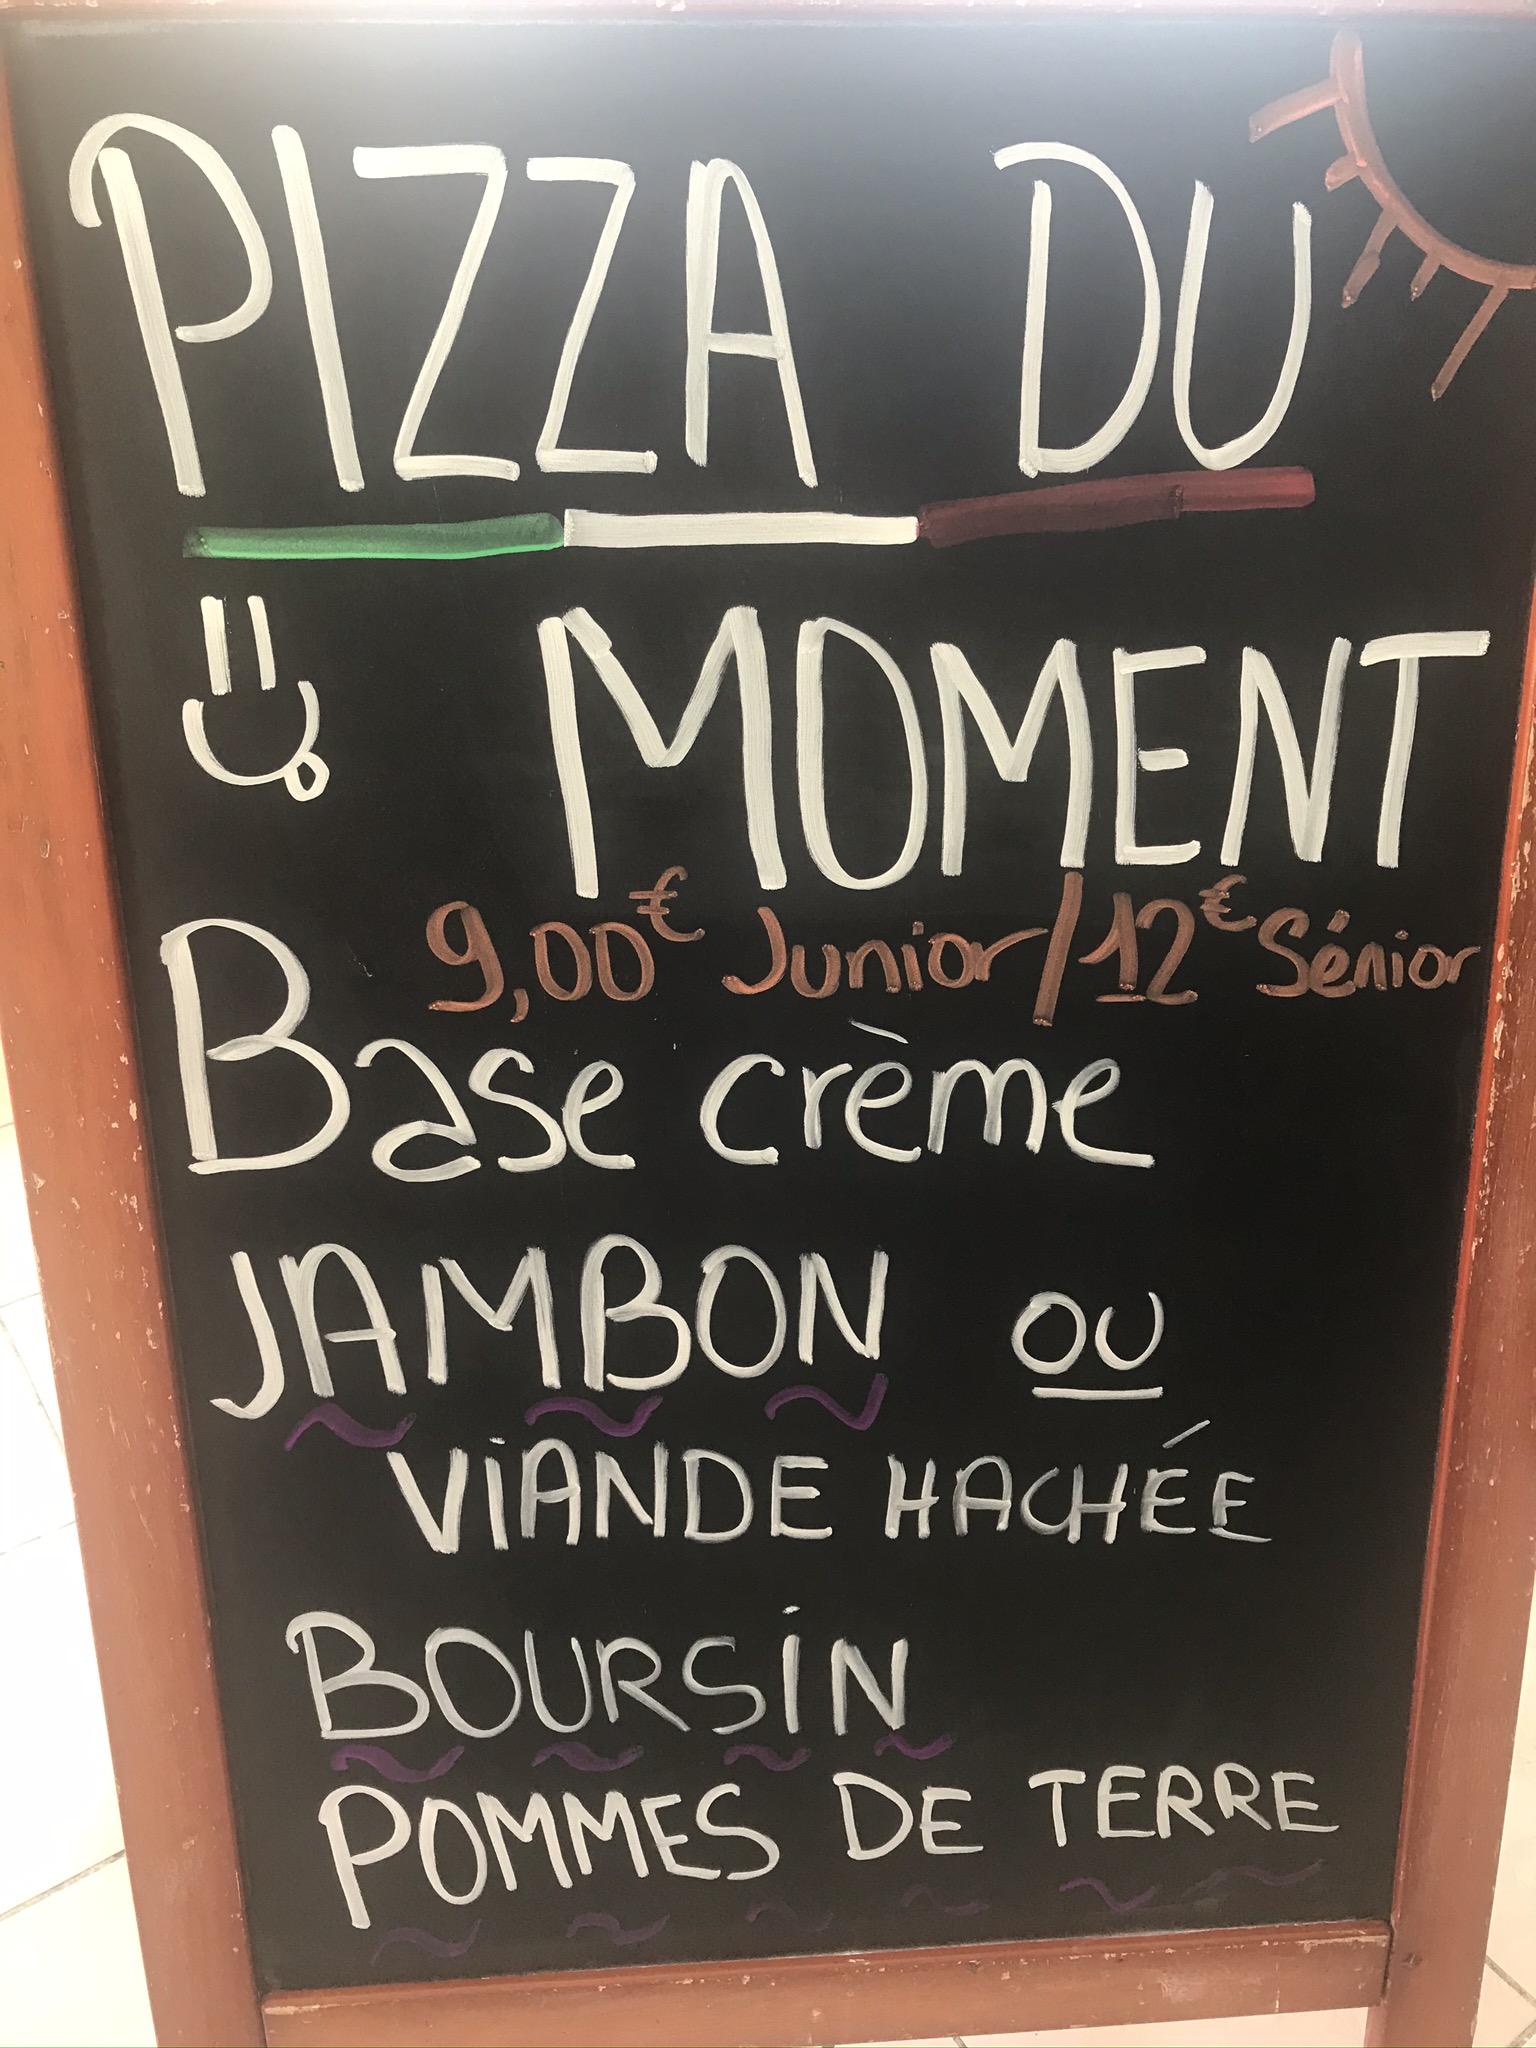 PIZZA DU
MOMENT
9,00€ Junior/12€ Sénior
Base crème
JAMBON ou
VIANDE HACHÉE
BOURSIN
POMMES DE TERRE